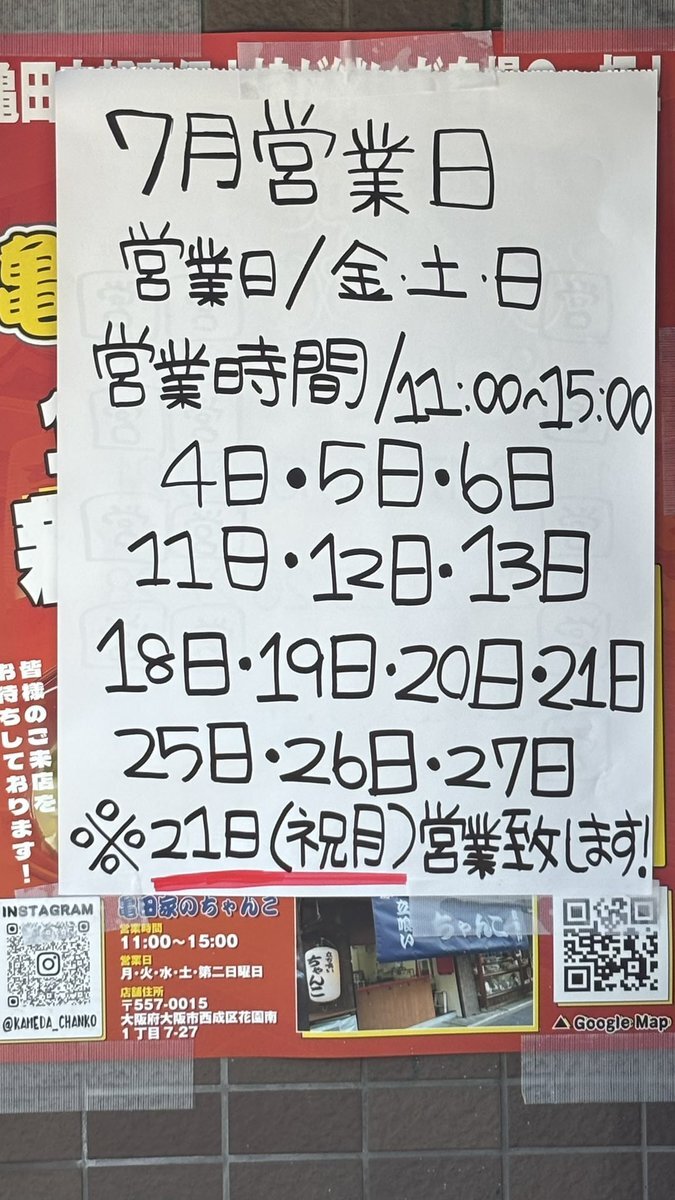 亀田
7月営業日
営業日/金・土・日
営業時間/11:00〜15:00
4日・5日・6日
11日・12日・13日
18日・19日・20日・21日
25日・26日・27日
※21日(祝月)営業致します!
亀
皆様のご来店を
お待ちしております!
INSTAGRAM
@KAMEDA_CHANKO
亀田家のちゃんこ
営業時間
11:00〜15:00
営業日
月・火・水・土・第二日曜日
店舗住所
〒557-0015
大阪府大阪市西成区花園南
1丁目7-27
立喰い
ちゃんこ
ちゃんこ
▲Google Map